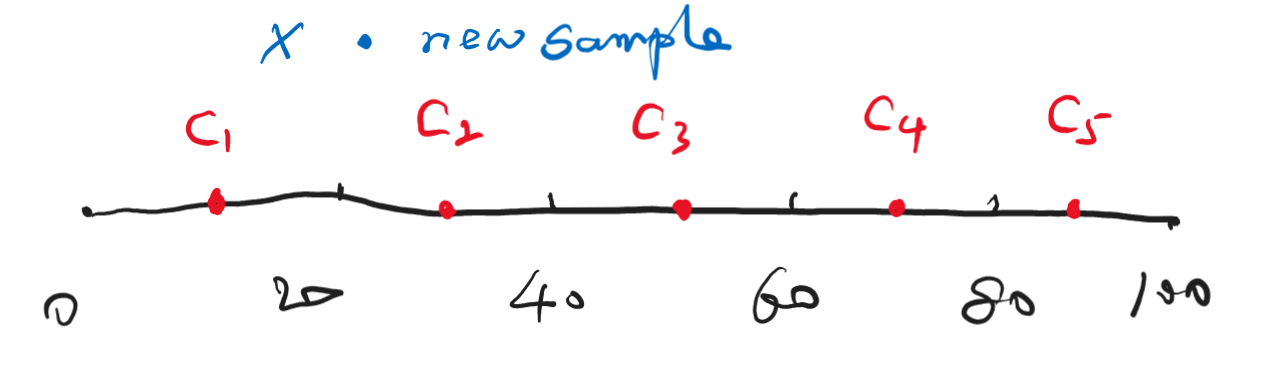 X • new sample
C1 C2 C3 C4 C5
0 20 40 60 80 100